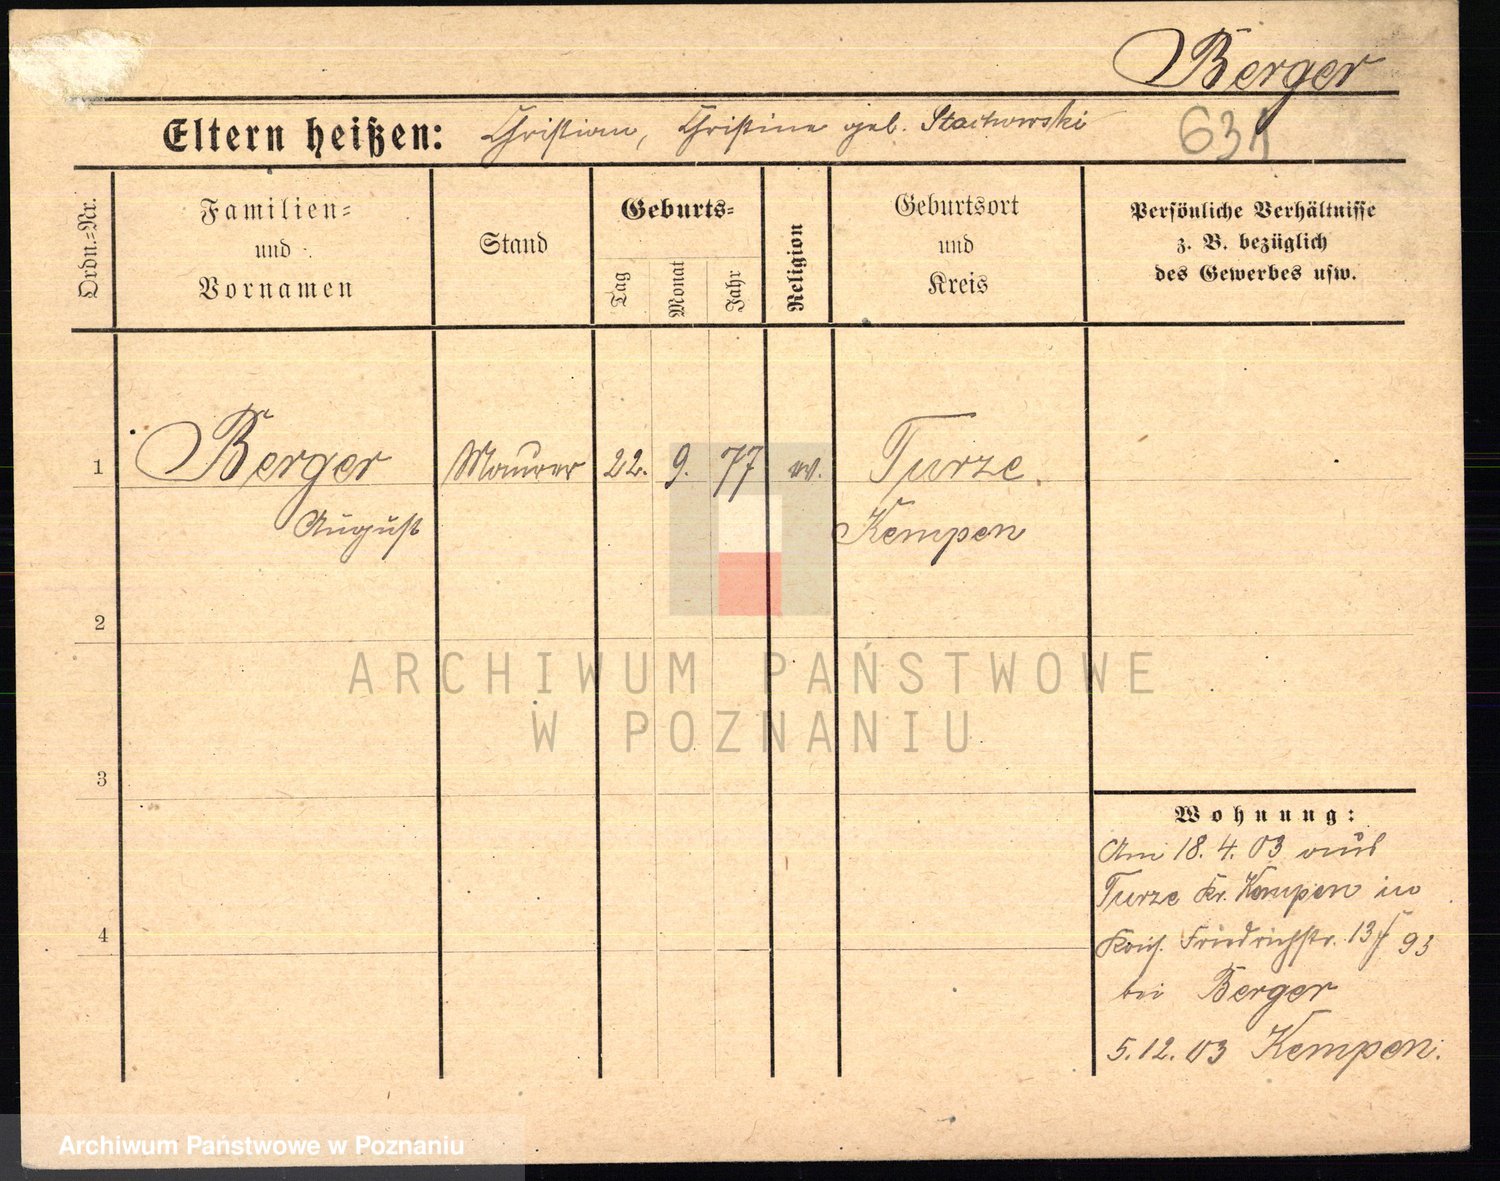 Berger
Eltern heißen: Christian, Christine geb. Stachowski
631
Ordn.=Nr.
Familien=
und
Vornamen
Stand
Geburts=
Tag
Monat
Jahr
Religion
Geburtsort
und
Kreis
Persönliche Verhältnisse
z. B. bezüglich
des Gewerbes usw.
1 Berger Maurer 22. 9. 77 ev. Turze.
August Kempen
2
3
4
ARCHIWUM PAŃSTWOWE
W POZNANIU
Wohnung:
Am 18. 4. 03 aus
Turze Kr. Kempen in
Friedrichstr. 93
bei Berger
5. 12. 03 Kempen.
Archiwum Państwowe w Poznaniu